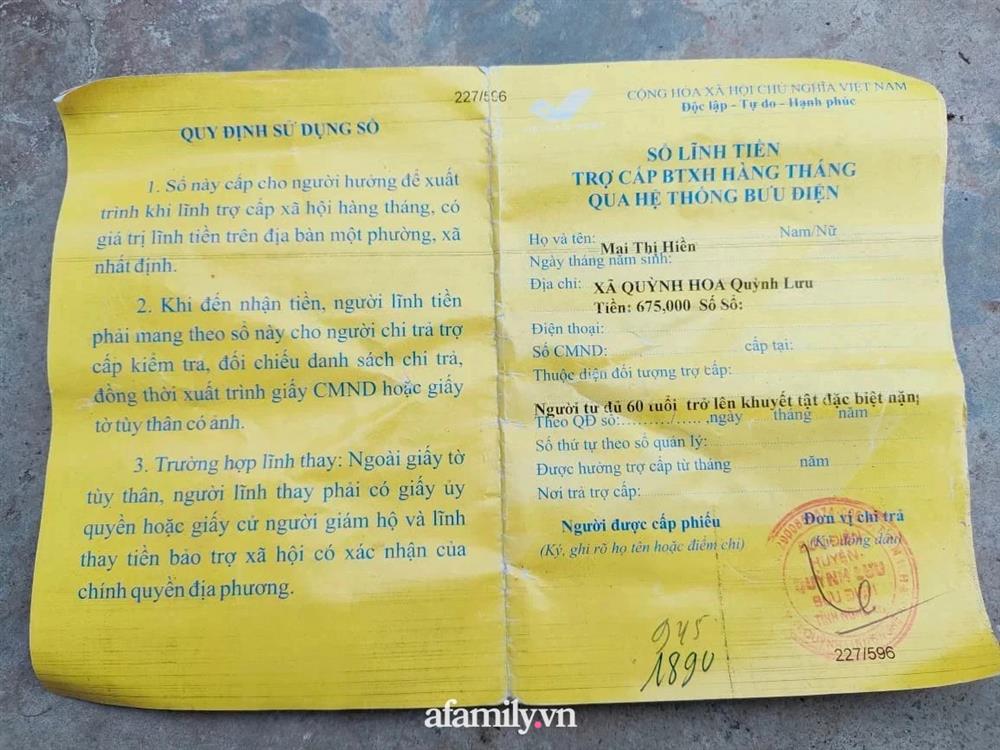 227/596
QUY ĐỊNH SỬ DỤNG SỔ
1. Sổ này cấp cho người hưởng để xuất
trình khi lĩnh trợ cấp xã hội hàng tháng, có
giá trị lĩnh tiền trên địa bàn một phường, xã
nhất định.
2. Khi đến nhận tiền, người lĩnh tiền
phải mang theo sổ này cho người chi trả trợ
cấp kiểm tra, đối chiếu danh sách chi trả,
đồng thời xuất trình giấy CMND hoặc giấy
tờ tùy thân có ảnh.
3. Trường hợp lĩnh thay: Ngoài giấy tờ
tùy thân, người lĩnh thay phải có giấy ủy
quyền hoặc giấy cử người giám hộ và lĩnh
thay tiền bảo trợ xã hội có xác nhận của
chính quyền địa phương.
CỘNG HÒA XÃ HỘI CHỦ NGHĨA VIỆT NAM
Độc lập - Tự do - Hạnh phúc
SỔ LĨNH TIỀN
TRỢ CẤP BTXH HÀNG THÁNG
QUA HỆ THỐNG BƯU ĐIỆN
Họ và tên: Mai Thị Hiền Nam/Nữ
Ngày tháng năm sinh:
Địa chỉ: XÃ QUỲNH HOA Quỳnh Lưu
Tiền: 675,000 Số Sổ:
Điện thoại:
Số CMND: cấp tại:
Thuộc diện đối tượng trợ cấp:
Người từ đủ 60 tuổi trở lên khuyết tật đặc biệt nặng
Theo QĐ số:........./....., ngày tháng năm
Số thứ tự theo sổ quản lý:
Được hưởng trợ cấp từ tháng năm
Nơi trả trợ cấp:
Người được cấp phiếu Đơn vị chi trả
(Ký, ghi rõ họ tên hoặc điểm chỉ) (Ký, đóng dấu)
HUYỆN
QUỲNH LƯU
BƯU ĐIỆN
945
1890
227/596
afamily.vn